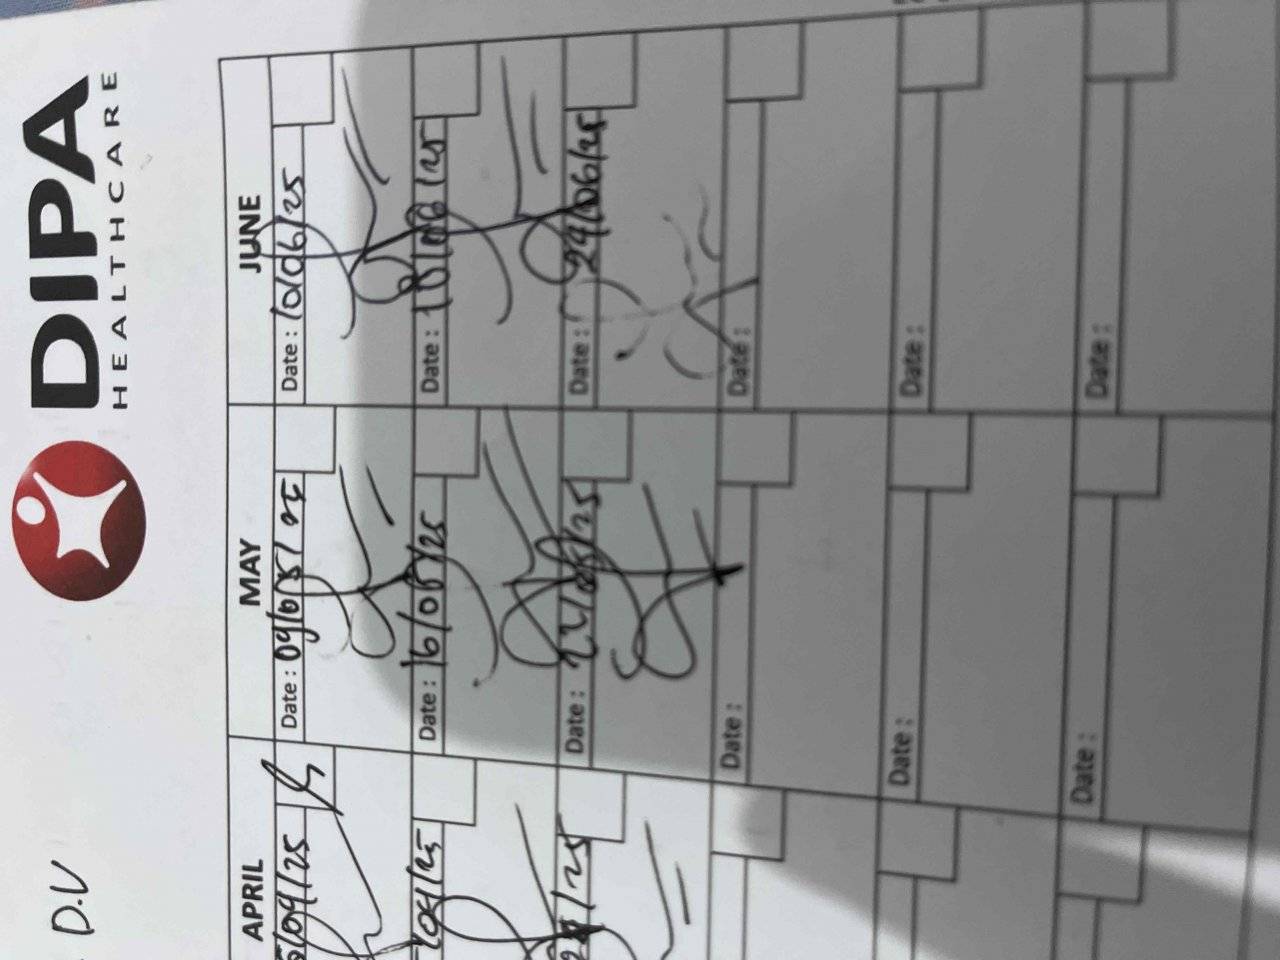 DIPA
HEALTHCARE
D.V
APRIL
MAY
JUNE
/04/25
Date : 09/05/25
Date : 10/06/25
/04/25
Date : 16/05/25
Date : 18/06/25
/25
Date : 22/05/25
Date : 24/06/25
Date :
Date :
Date :
Date :
Date :
Date :